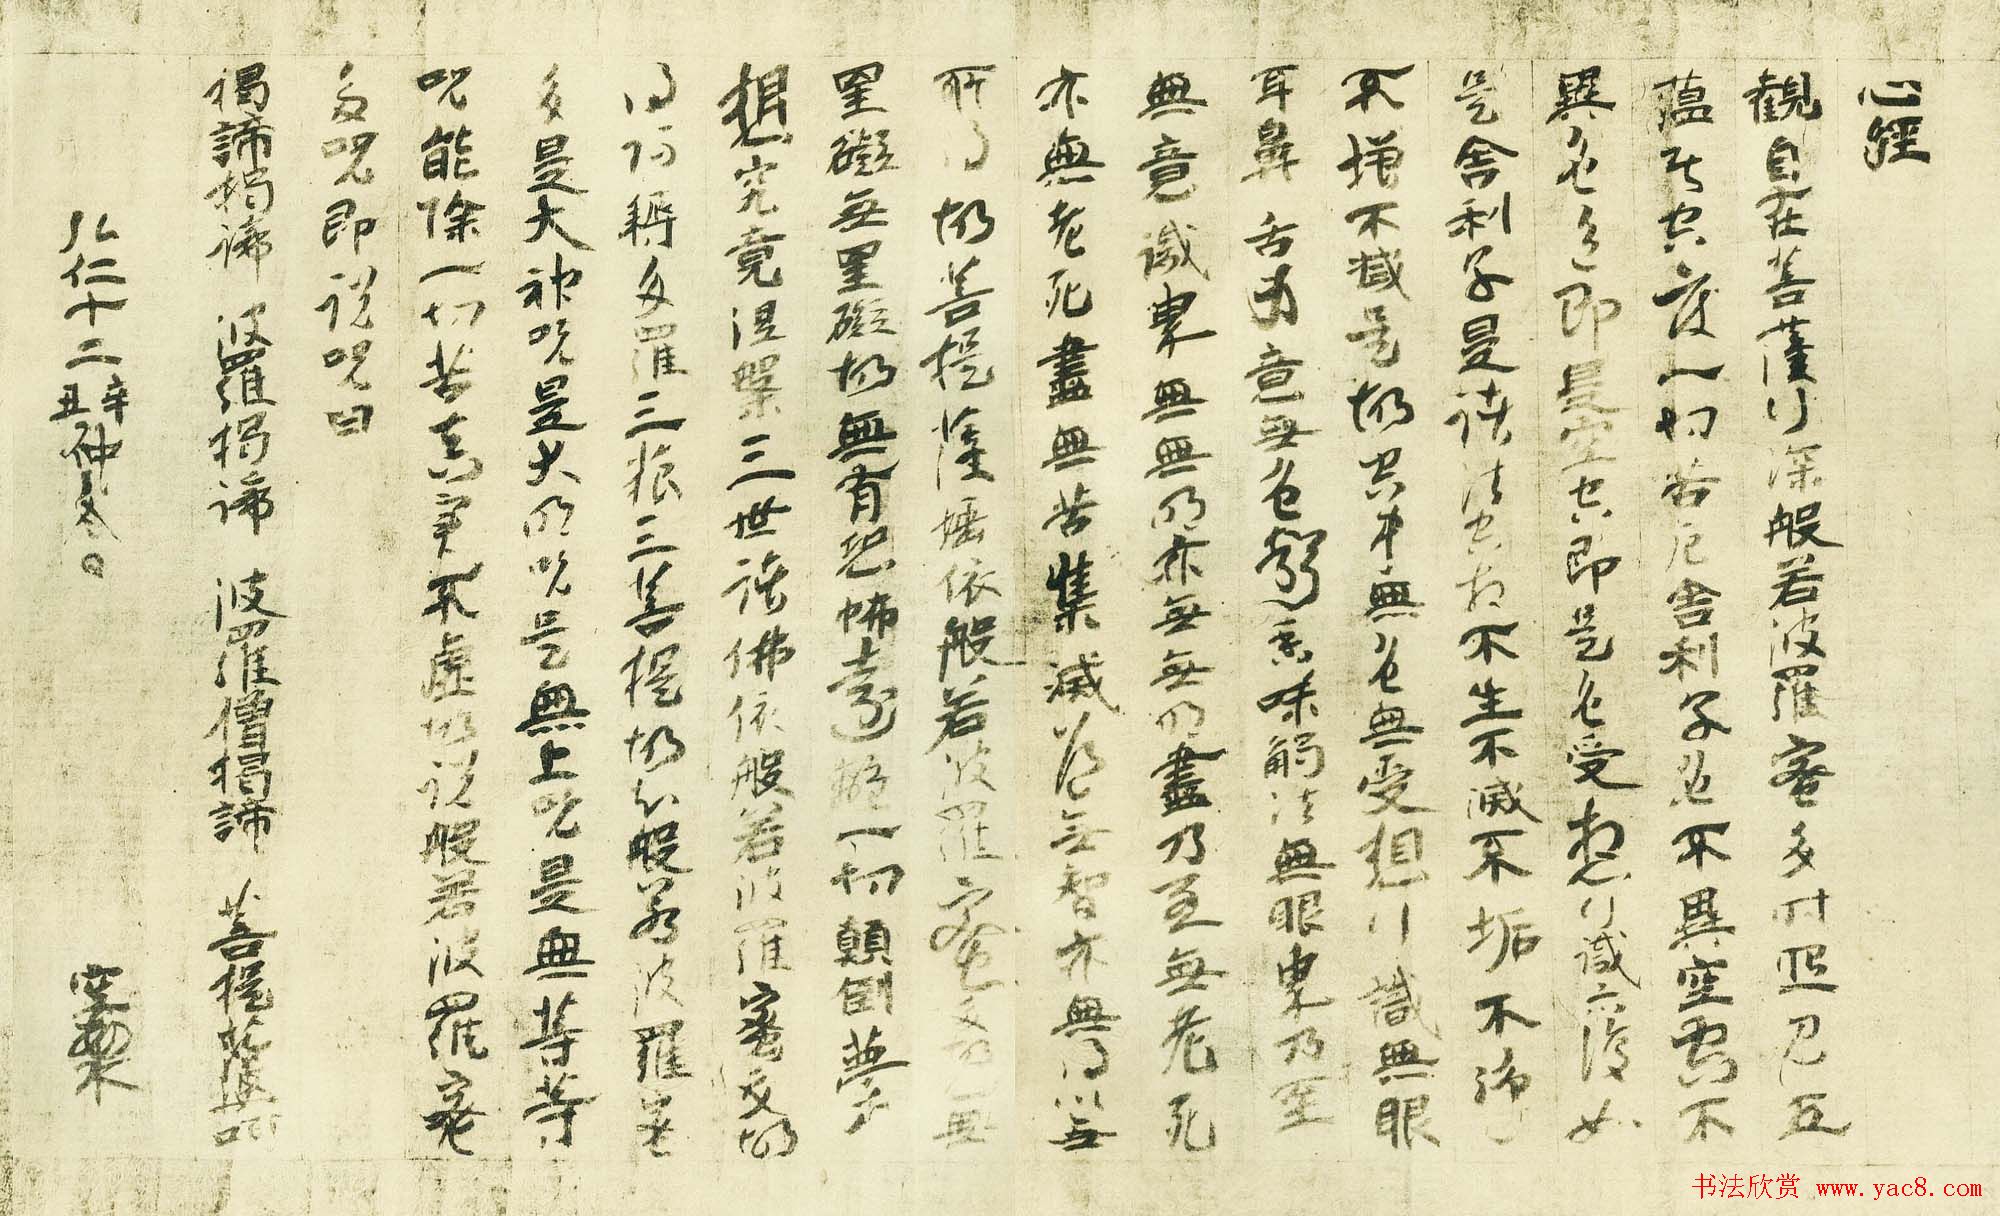 心經
觀自在菩薩行深般若波羅蜜多時照見五
蘊皆空度一切苦厄舍利子色不異空空不
異色色即是空空即是色受想行識亦復如
是舍利子是諸法空相不生不滅不垢不淨
不增不減是故空中無色無受想行識無眼
耳鼻舌身意無色聲香味觸法無眼界乃至
無意識界無無明亦無無明盡乃至無老死
亦無老死盡無苦集滅道無智亦無得以無
所得故菩提薩埵依般若波羅蜜多故無
罣礙無罣礙故無有恐怖遠離一切顛倒夢
想究竟涅槃三世諸佛依般若波羅蜜多故
得阿耨多羅三藐三菩提故知般若波羅蜜
多是大神咒是大明咒是無上咒是無等等
咒能除一切苦真實不虛故說般若波羅蜜
多咒即說咒曰
揭諦揭諦 波羅揭諦 波羅僧揭諦 菩提薩婆訶
弘仁十二辛丑仲冬。 空海
书法欣赏 www.yac8.com